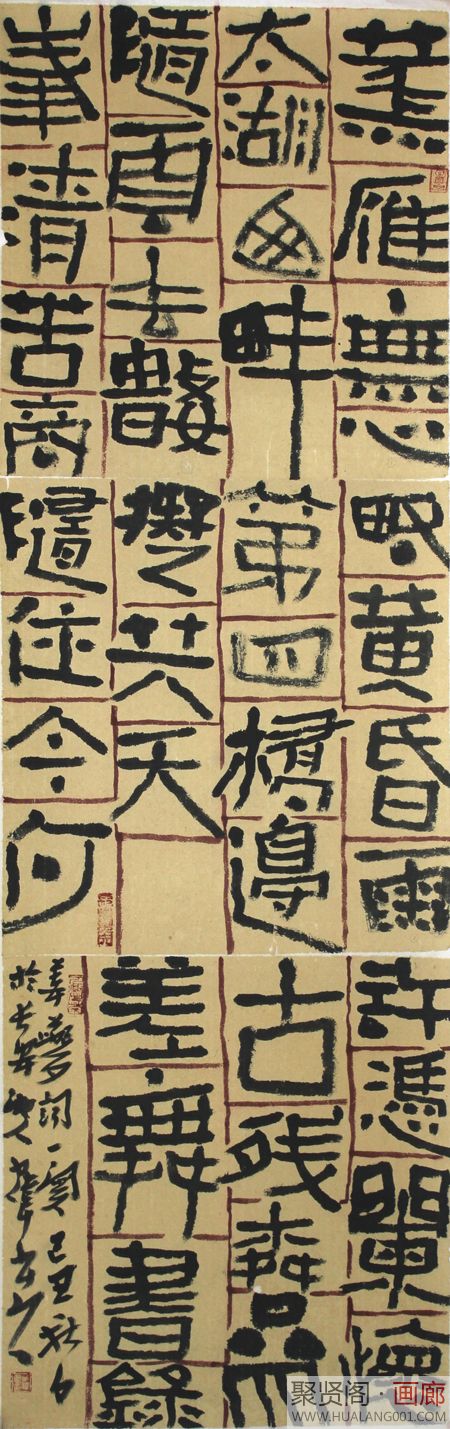 燕雁無心
太湖西畔
隨雲去數
峯清苦商
略黃昏雨
第四橋邊
擬共天
隨住今何
許憑闌懷
古残
差舞書錄
姜夔詞一闋己丑秋日
於長安
聚贤阁·画廊
WWW.HUALANG001.COM